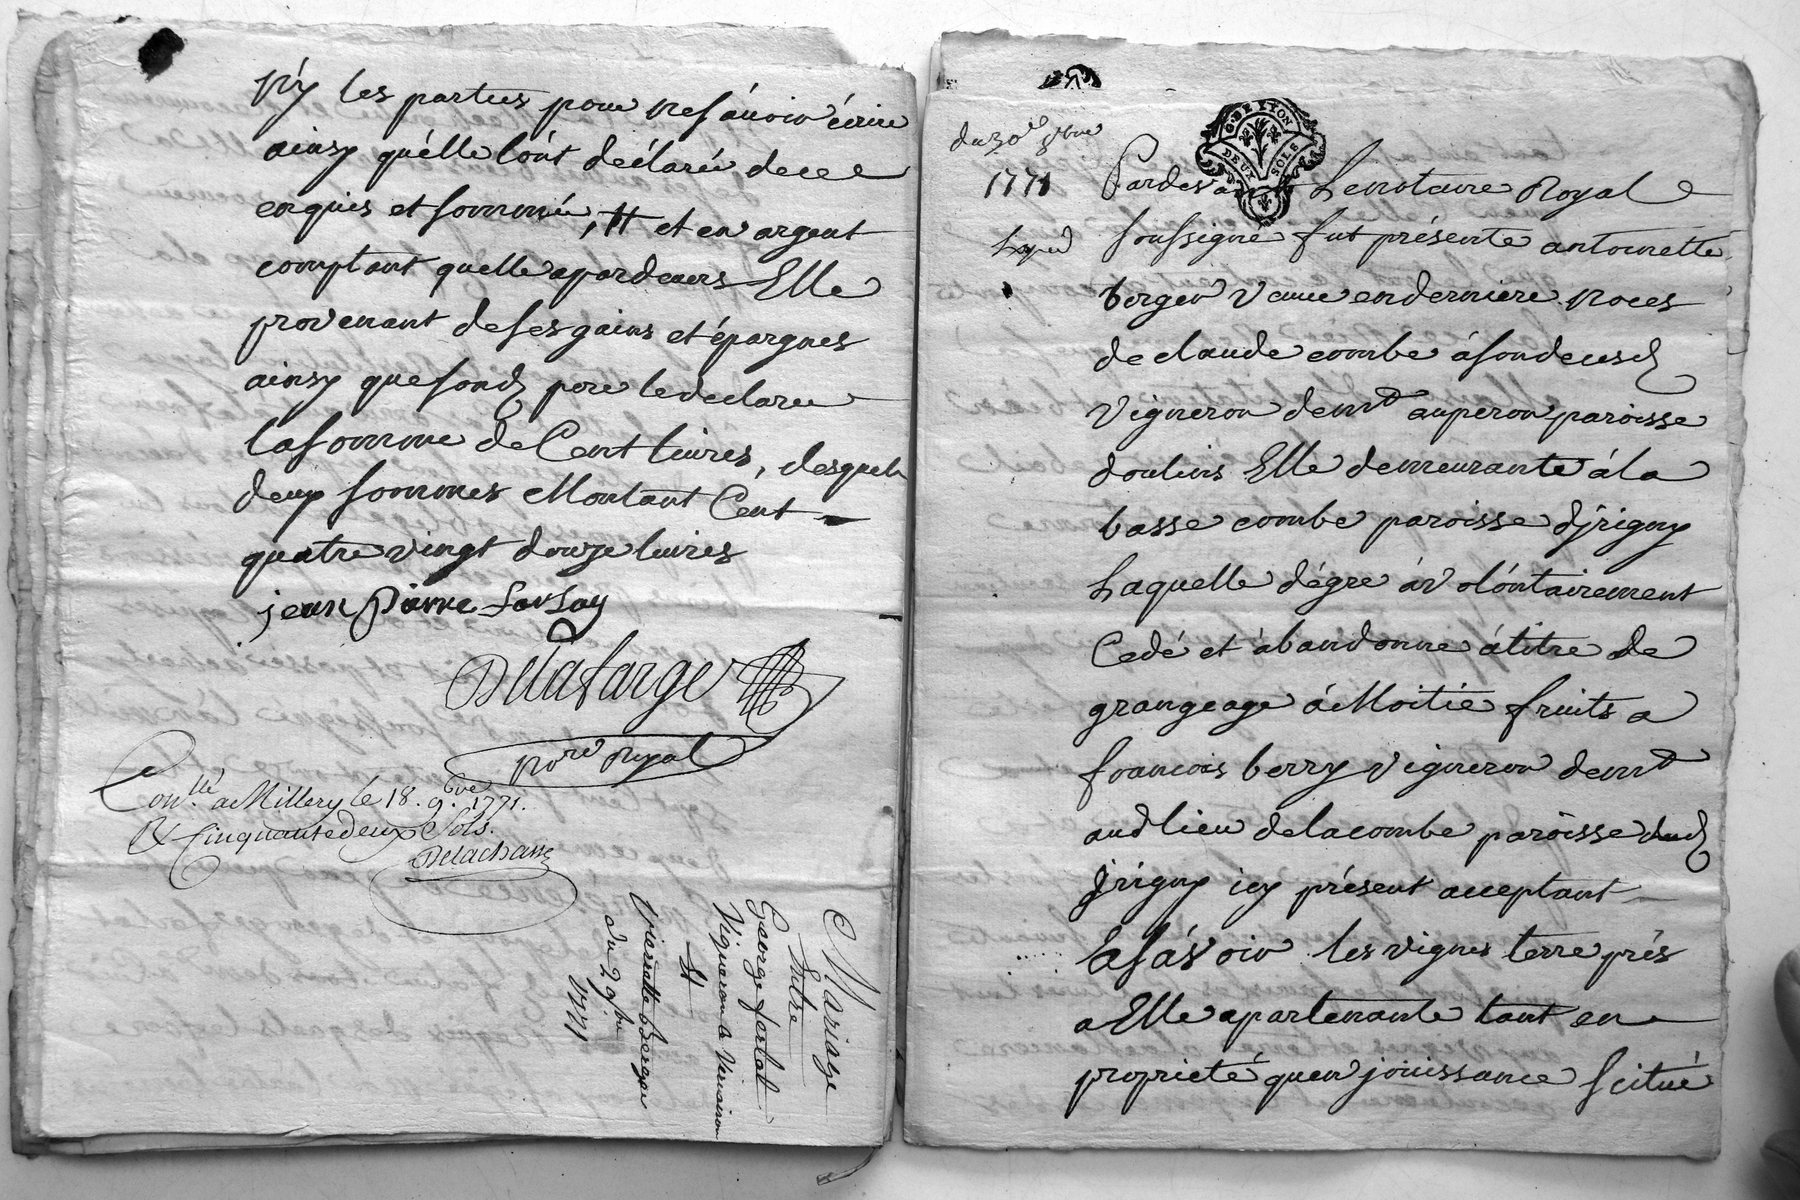 ny les parties pour ne sávoir écrire
ainsy quélle lónt déclaré de ce
enquis et sommé, # et en argent
comptant quelle a pardevers Elle
provenant de ses gains et épargnes
ainsy que sond pere le declare
la somme de Cent livres, desquels
deux sommes Montant Cent
quatre vingt douze livres
jean Pierre
Delafarge
no.re Royal
Con.llé a Millery lé 18. 9.bre 1771.
R Cinquante deux Sols.
Delachasse
Mariage
Entre
George ferlat
Vigneron a Vernaison
&
Pierrette bberger
du 2 9bre
1771
du 30e 8bre
1771
G. DE LYON
DEUX SOLS
Pardevant Le notaire Royal
Expéd
soussigné fut présente antoinette
berger veuve en derniere noces
de claude combe á son decesd
vigneron demt au peron paroisse
doulins Elle demeurante á la
basse combe paroisse djrigny
Laquelle dégré áv olóntairement
Cedé et ábandonné á titre de
grangeage á Moitié fruits a
francois berry vigneron demt
aud lieu de la combe paroisse dud
jrigny icy présent acceptant
Asávoir les vignes terre prés
a Elle apartenante tant en
proprieté quen joüissance Scitué